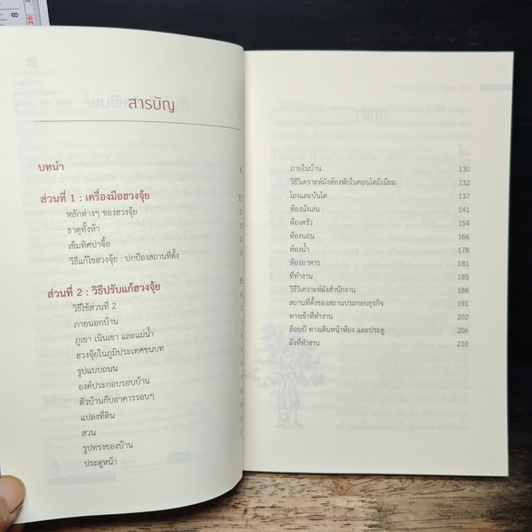 สารบัญ
บทนำ
ส่วนที่ 1 : เครื่องมือฮวงจุ้ย
หลักต่างๆ ของฮวงจุ้ย
ธาตุทั้งห้า
เข็มทิศปาจื้อ
วิธีแก้ไขฮวงจุ้ย : ปกป้องสถานที่ตั้ง
ส่วนที่ 2 : วิธีปรับแก้ฮวงจุ้ย
วิธีใช้ส่วนที่ 2
ภายนอกบ้าน
ภูเขา เนินเขา และแม่น้ำ
ฮวงจุ้ยในภูมิประเทศชนบท
รูปแบบถนน
องค์ประกอบรอบบ้าน
ตัวบ้านกับอาคารรอบๆ
แปลงที่ดิน
สวน
รูปทรงของบ้าน
ประตูหน้า
ภายในบ้าน 130
วิธีวิเคราะห์ผังห้องพักในคอนโดมิเนียม 132
โถงและบันได 137
ห้องนั่งเล่น 141
ห้องครัว 154
ห้องนอน 166
ห้องน้ำ 178
ห้องอาหาร 181
ที่ทำงาน 185
วิธีวิเคราะห์ผังสำนักงาน 186
สถานที่ตั้งของสถานประกอบธุรกิจ 191
ทางเข้าที่ทำงาน 202
ล็อบบี ทางเดินหน้าห้อง และประตู 206
ผังที่ทำงาน 210